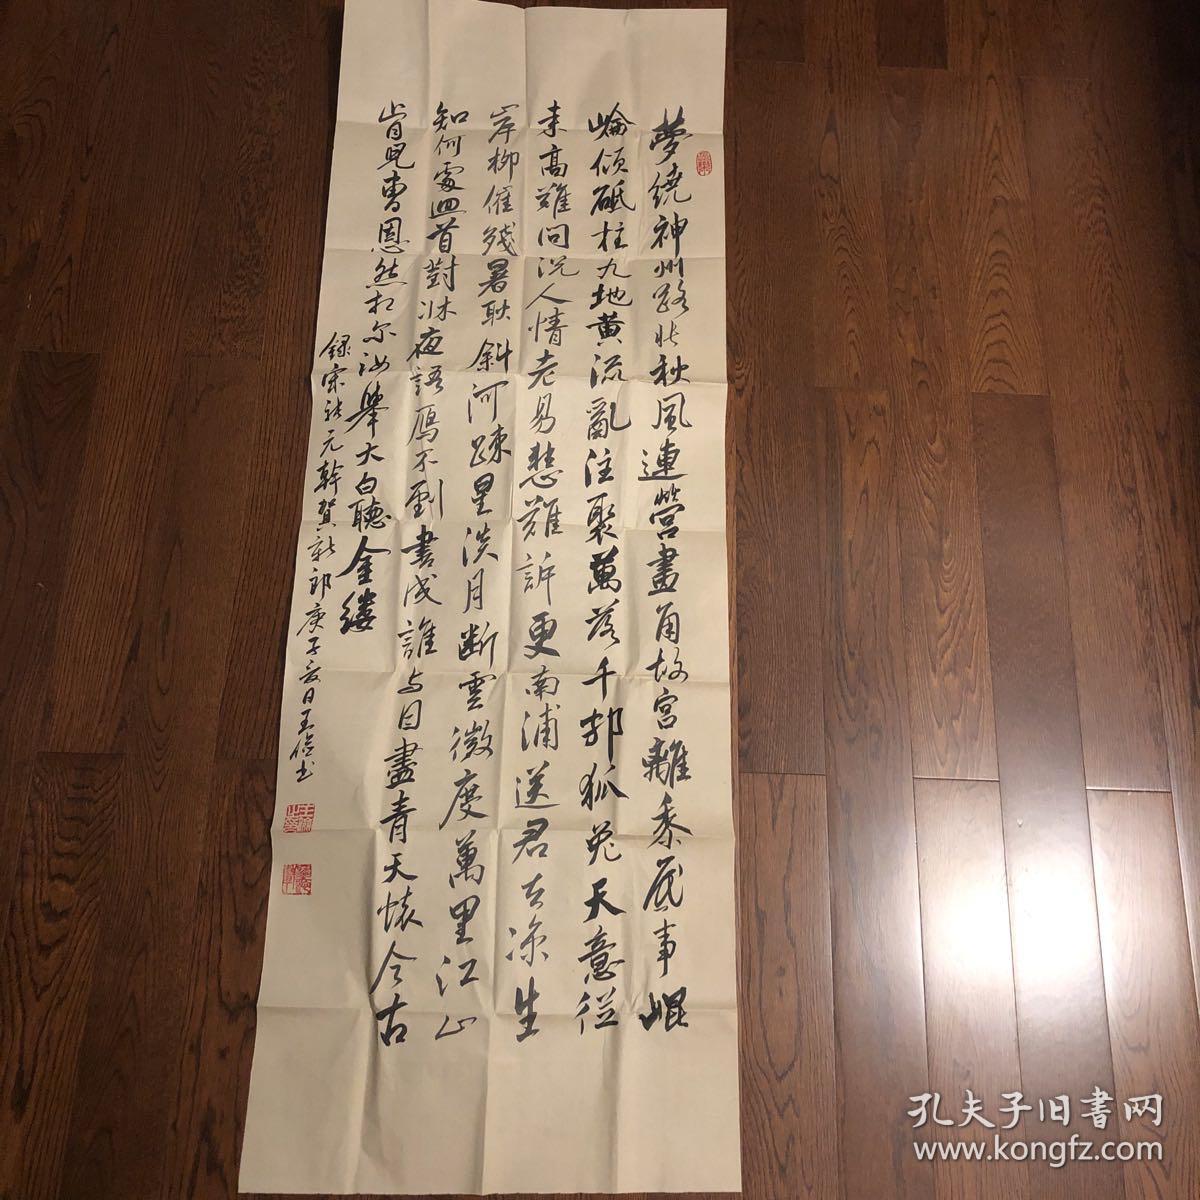 夢繞神州路悵秋風連營畫角故宮離黍底事崐
崘傾砥柱九地黄流亂注聚萬落千邨狐兔天意從
来高難問况人情老易悲難訴更南浦送君去凉生
岸柳催殘暑耿斜河疎星淡月斷雲微度萬里江山
知何處迴首對牀夜語鴈不到書成誰与目盡青天懷今古
肯兒曹恩怨相尔汝舉大白聽金縷
録宋張元幹賀新郎庚子夏日王信书
孔夫子旧書网
www.kongfz.com